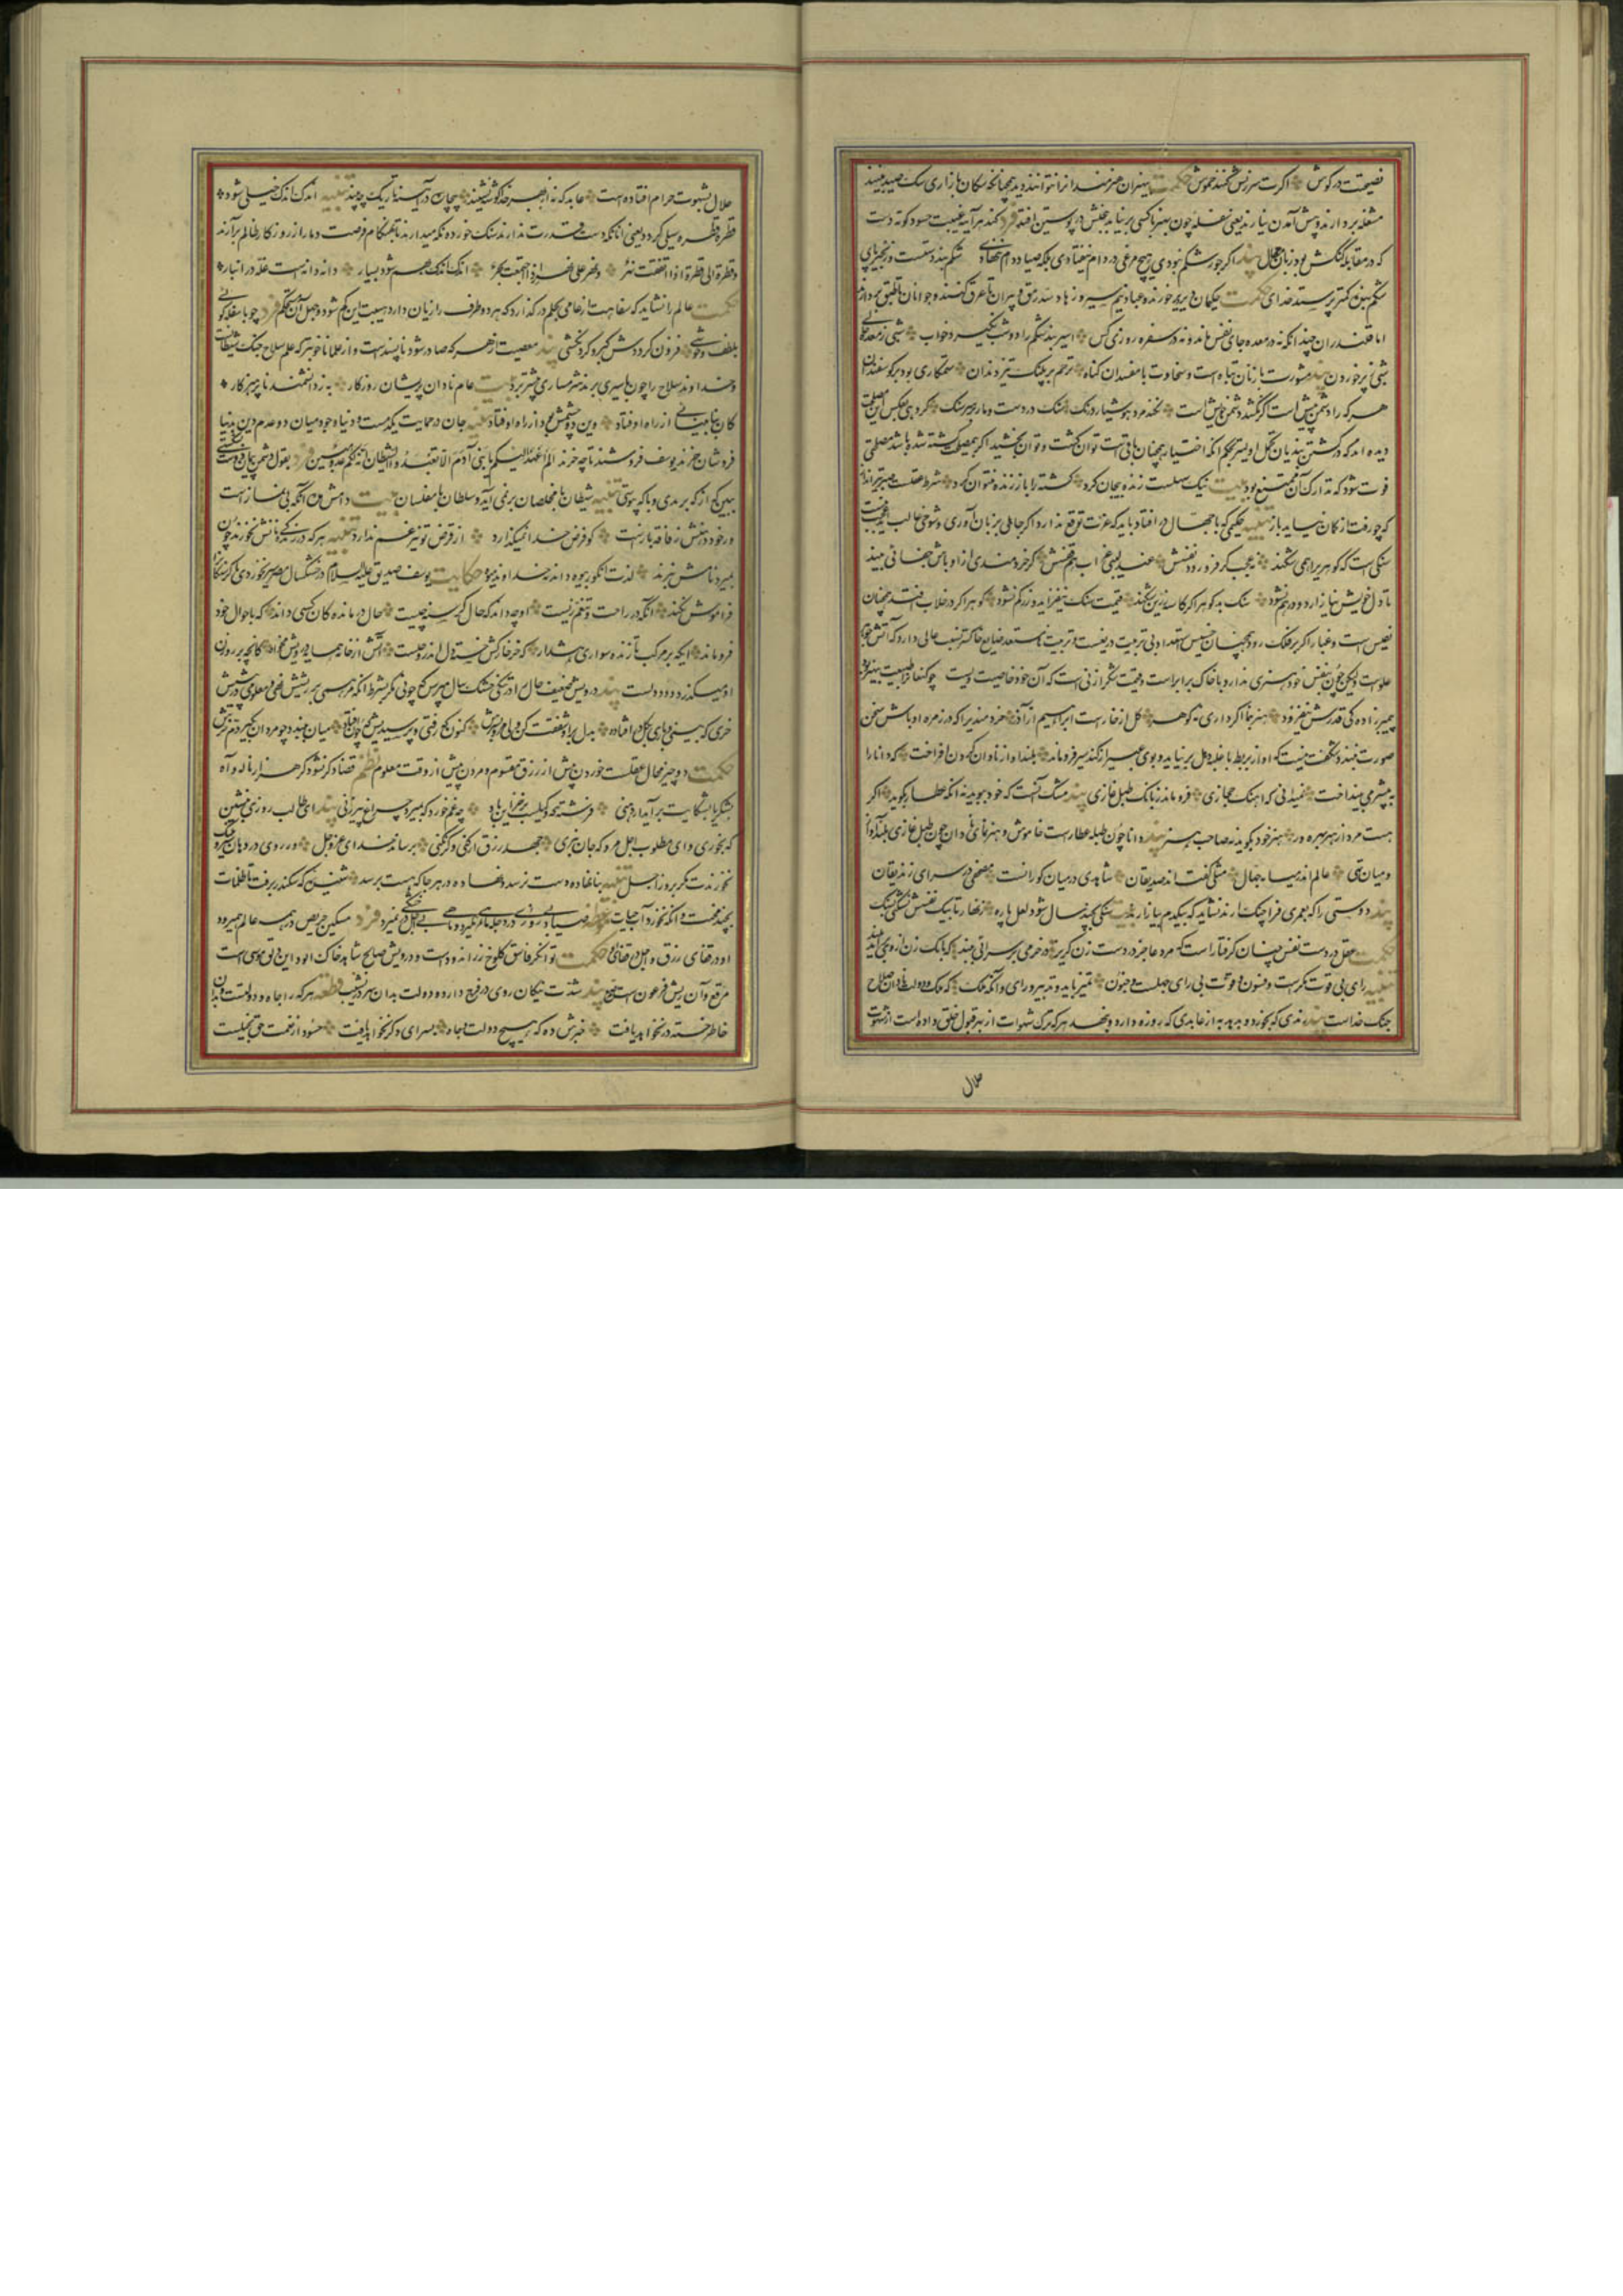 نصیحت در گوش اگرت سرزنش کنند خموش حکمت بی هنران هنرمند را نتوانند دید همچنانکه سکان بازاری سک صید بینند
مشغله بر دارند و پیش آمدن نیارند یعنی سفله چون بهنر با کسی بر نیاید بخبثش در پوستین افتد فرد کند هر آینه غیبت حسود کوته دست
که در مقابله گنگش بود زبان مقال پند اگر جور شکم نبودی هیچ مرغی در دام نیفتادی بلکه صیاد دام ننهادی شکم بند دستست و زنجیر پای
شکم بنده کمتر پرستد خدای حکمت حکیمان دیر دیر خورند و عابدان نیم سیر و زاهدان سد رمق و پیران تا عرق کنند و جوانان تا طبق بردارند
اما قلندران چندانکه در معده جای نفس نماند و نه در سفره روزی کس اسیر بند شکم را دو شب نگیرد خواب شبی ز معده سنگی
شبی ز خوردن پند مشورت با زنان تباه است و سخاوت با مفسدان گناه ترحم بر پلنک تیز دندان ستمکاری بود بر گوسفندان
هر که را دشمن پیش است اگر نکشد دشمن خویش است سنک در دست و مار بر سر سنک
دیده اند که در کشتن بندیان تامل اولیتر بحکم آنکه اختیار همچنان باقی است توان کشت و توان بخشید اگر بی تامل کشته شود باشد مصلحتی
فوت شود که تدارک آن ممتنع بود بیت نیک سهلست زنده بیجان کرد کشته را باز زنده نتوان کرد شرط عقلست صبر تیر انداز
که چو رفت از کمان نیاید باز تنبیه حکیمی که با جهال در افتاد باید که عزت توقع ندارد اگر جاهلی بزبان آوری و شوخی غالب آید عجب نیست
سنگی است که گوهر را همی شکند نه عجب گر فرو رود نفسش عندلیبی غراب هم قفسش گر خردمندی از اوباش جفائی بیند
تا دل خویش نیازارد و درهم نشود سنگ بد گوهر اگر کاسه زرین شکند قیمت سنک نیفزاید و زر کم نشود گوهر اگر در خلاب افتد همچنان
نفیس است و غبار اگر بر فلک رود همچنان خسیس استعداد بی تربیت دریغست و تربیت نامستعد ضایع خاکستر نسب عالی دارد که آتش جوهر
علویست ولیکن چون بنفس خود هنری ندارد با خاک برابر است و قیمت شکر از نی است که آن خود خاصیت ویست چو کنعان را طبیعت بی هنر بود
پیمبر زادگی قدرش نیفزود هنر بنما اگر داری نه گوهر گل از خار است ابراهیم از آذر خردمندی را که در زمره اوباش سخن
صورت نبندد شکفت نیست که آواز بربط با غلبه دهل بر نیاید و بوی عبیر از گند سیر فرو ماند بلند آواز نادان گردن افراخت که دانا را
به بیشرمی بینداخت نمیدانی که آهنک حجازی فرو ماند ز بانک طبل غازی پند مشک آنست که خود ببوید نه آنکه عطار بگوید اگر
هست مرد از هنر بهره ور هنر خود بگوید نه صاحب هنر پند دانا چون طبله عطار است خاموش و هنر نمای و نادان چون طبل غازی بلند آواز
و میان تهی عالم اندر میانه جهال مثلی گفته اند صدیقان شاهدی در میان کورانست مصحفی در سرای زندیقان
پند دوستی را که بعمری فرا چنک آرند نشاید که بیکدم بیازارند بیت سنگی بچند سال شود لعل پاره زنهار تا بیک نفسش نشکنی بسنک
حکمت عقل در دست نفس چنان گرفتار است که مرد عاجز در دست زن گربز در خرمی بر سرائی ببند که بانک زن از وی برآید بلند
تنبیه رای بی قوت مکرست و فسون و قوت بی رای جهلست و جنون تمیز باید و تدبیر و رای وانگه ملک که ملک و دولت نادان سلاح
جنگ خداست پند رندی که بخورد و بدهد به از عابدی که روزه دارد و بنهد هر که ترک شهوات از بهر قبول خلق داده است از شهوت
حلال
حلال بشهوت حرام افتاده است عابد که نه از بهر خدا گوشه نشیند بیچاره در آینه تاریک چه بیند تنبیه اندک اندک خیلی شود
قطره قطره سیلی گردد یعنی آنانکه دست قدرت ندارند سنک خورده نکه میدارند تا بهنگام فرصت دمار از روزگار ظالم برآرند
و قطرة الی قطرة اذا اتفقت نهر و نهر علی نهر اذا اجتمعت بحر اندک اندک بهم شود بسیار دانه دانه است غله در انبار
حکمت عالم را نشاید که سفاهت از عامی بحلم در گذارد که هر دو طرف را زیان دارد هیبت این کم شود و جهل آن محکم فرد چو با سفله گوئی
بلطف و خوشی فزون گرددش کبر و گردنکشی پند معصیت از هر که صادر شود ناپسند است و از علما ناخوبتر که علم سلاح جنک شیطانست
و خداوند سلاح را چون باسیری برند شرمساری بیشتر برد بیت عام نادان پریشان روزگار به ز دانشمند ناپرهیزگار
کان بنابینائی از راه اوفتاد وین دو چشمش بود و از راه اوفتاد تنبیه جان در حمایت یکدمست و دنیا وجودی میان دو عدم دین بدنیا
فروشان خرند یوسف فروشند تا چه خرند الم اعهد الیکم یا بنی آدم ان لا تعبدوا الشیطان انه لکم عدو مبین فرد بقول دشمن پیمان دوست بشکستی
ببین که از که بریدی و با که پیوستی تنبیه شیطان با مخلصان بر نمی آید و سلطان با مفلسان بیت وامش مده آنکه بی نماز است
ور خود دهنش ز فاقه باز است کو فرض خدا نمیگذارد از قرض تو نیز غم ندارد تنبیه هر که در زندگی نانش نخورند چون
بمیرد نامش نبرند لذت انگور بیوه داند نه خداوند میوه حکایت یوسف صدیق علیه السلام در خشک سال مصر سیر نخوردی تا گرسنکان
فراموش نکند آنکه در راحت و تنعم زیست او چه داند که حال گرسنه چیست حال درماندگان کسی داند که باحوال خود
فرو ماند ایکه بر مرکب تازنده سواری هشدار که خر خارکش سوخته دل اندر گلست آتش از خانه همسایه درویش مخواه کانچه بر روزن
او میگذرد دود دلست پند درویش ضعیف حال را در تنگی خشک سال مپرس که چونی مگر بشرط آنکه مرهمی بر ریشش نهی و معلومی در پیش
خری که بینی و باری بگل در افتاده بدل برو شفقت کن ولی مرو بسرش کنون که رفتی و پرسیدیش که چون افتاد میان ببند و چو مردان بگیر دم خرش
حکمت دو چیز محال عقلست خوردن بیش از رزق مقسوم و مردن پیش از وقت معلوم نظم قضا دگر نشود گر هزار ناله و آه
بشکر یا بشکایت برآید از دهنی فرشته که وکیلست بر خزاین باد چه غم خورد که بمیرد چراغ پیرزنی پند ای طالب روزی بنشین
که بخوری و ای مطلوب اجل مرو که جان نبری جهد رزق ار کنی و گر نکنی برساند خدای عز و جل ور روی در دهان شیر و پلنک
نخورندت مگر بروز اجل تنبیه بنانهاده دست نرسد و نهاده در هرجا که هست برسد شنیده ای که سکندر برفت تا ظلمات
بچند محنت و آنکه نخورد آب حیات صیاد بی روزی در دجله ماهی نگیرد و ماهی بی اجل در خشکی نمیرد فرد مسکین حریص در همه عالم همی رود
او در قفای رزق و اجل در قفای او حکمت توانگر فاسق کلوخ زر اندودست و درویش صالح شاهد خاک آلود این دلق موسی است
مرقع و آن ریش فرعون است مرصع پند شدت نیکان روی در فرج دارد و دولت بدان سر در نشیب قطعه هر که را جاه و دولتست و بدان
خاطر خسته در نخواهد یافت خبرش ده که هیچ دولت و جاه بسرای دگر نخواهد یافت حسود از نعمت حق بخیلست